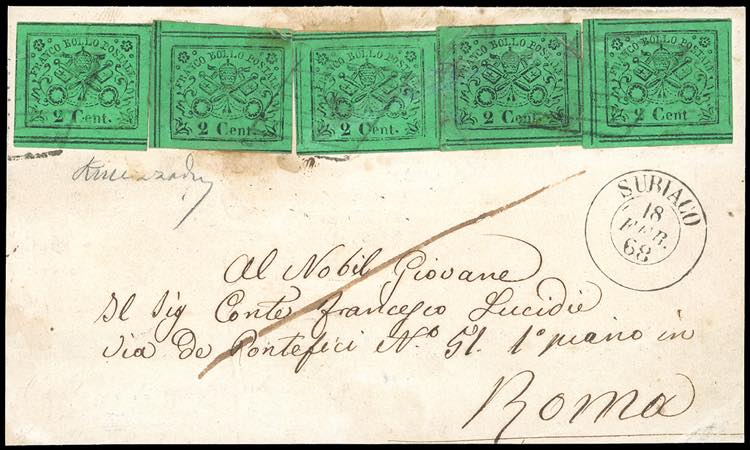 FRANCO BOLLO POSTALE
2 Cent.
FRANCO BOLLO POSTALE
2 Cent.
FRANCO BOLLO POSTALE
2 Cent.
FRANCO BOLLO POSTALE
2 Cent.
FRANCO BOLLO POSTALE
2 Cent
SUBIACO
18
FEB.
68
Al Nobil Giovane
Il Sig Conte Francesco Lucidie
Via de Pontefici N.o 51. 1o piano in
Roma